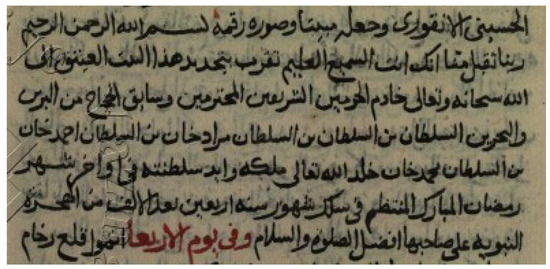 الحسيني الانقوري وجعله مبيتا وصوره رقمه بسم الله الرحمن الرحيم
ربنا تقبل منا انك انت السميع العليم تقرب بتجديد هذا البيت العتيق الى
الله سبحانه وتعالى خادم الحرمين الشريفين المحترمين وسابق الحجاج من البرين
والبحرين السلطان بن السلطان بن السلطان مراد خان بن السلطان احمد خان
بن السلطان محمد خان خلد الله تعالى ملكه وابد سلطنته في اواخر شهر
رمضان المبارك المنتظم في سلك شهور سنه اربعين بعد الالف من الهجرة
النبويه على صاحبها افضل الصلوة والسلام وفي يوم الاربعا اتموا قلع رخام